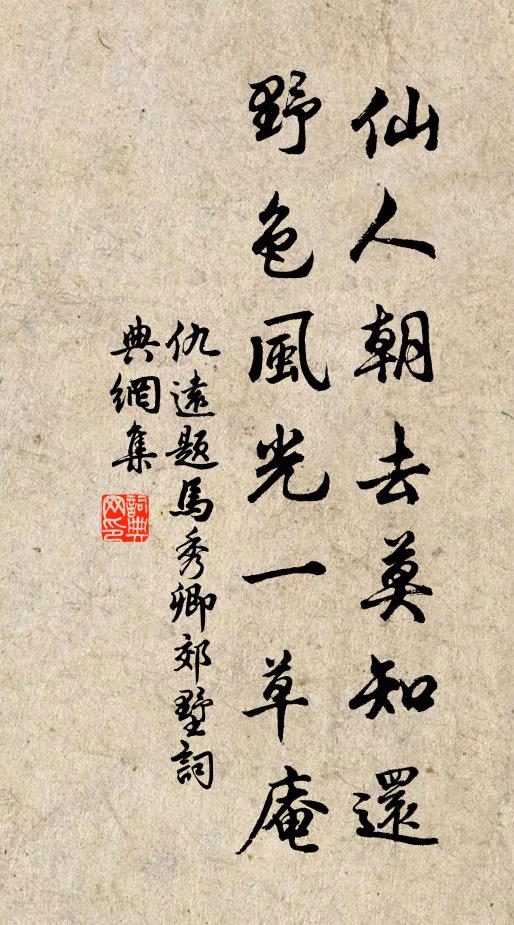 仙人朝去莫知還
野色風光一草庵
仇遠題馬秀卿郊墅詞
典網集
詞典
网印